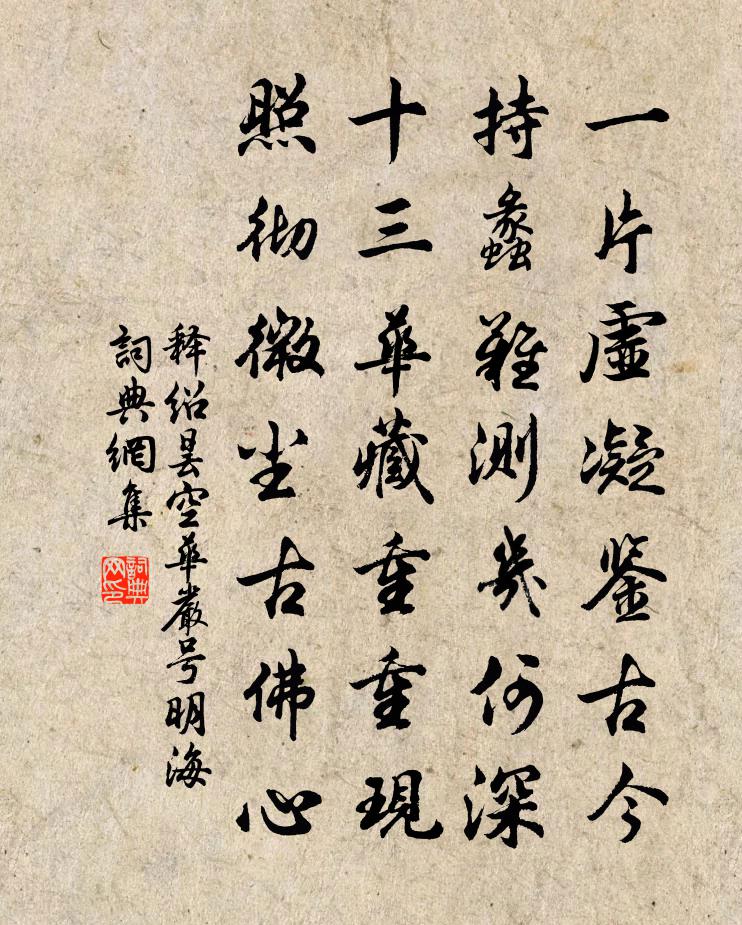 一片虛凝鉴古今
持蠡難測幾何深
十三華藏重重現
照彻微尘古佛心
释绍昙空華嚴号明海
詞典網集
詞典网印